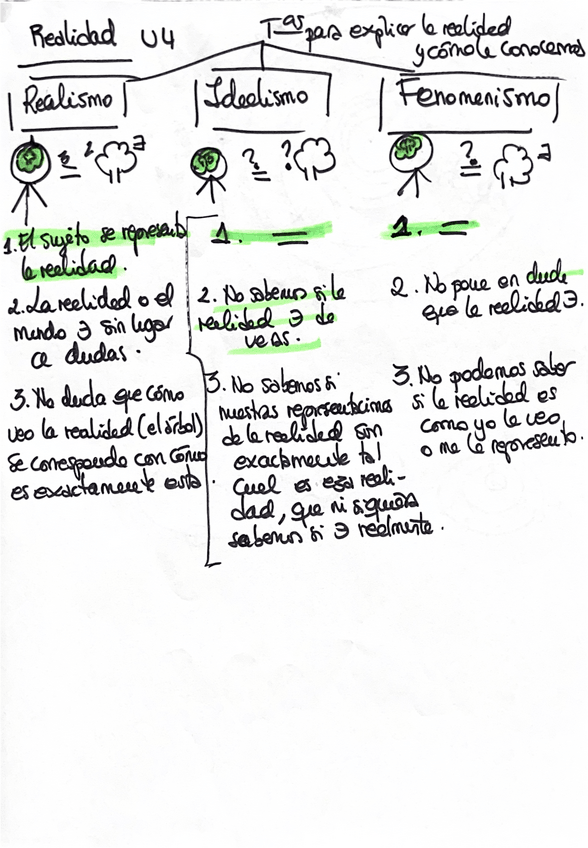 Realidad U4
Tªs para explicar la realidad
y cómo la conocemos
Realismo
Idealismo
Fenomenismo
= ² ∃
? = ?
? = ∃
1. El sujeto se representa
la realidad.
2. La realidad o el
mundo ∃ sin lugar
a dudas.
3. No duda que cómo
veo la realidad (el árbol)
se corresponda con cómo
es exactamente esta.
1. =
2. No sabemos si la
realidad ∃ de
veras.
3. No sabemos si
nuestras representaciones
de la realidad son
exactamente tal
cual es esa reali-
dad, que ni siquiera
sabemos si ∃ realmente.
1. =
2. No pone en duda
que la realidad ∃.
3. No podemos saber
si la realidad es
como yo la veo,
o me la represento.